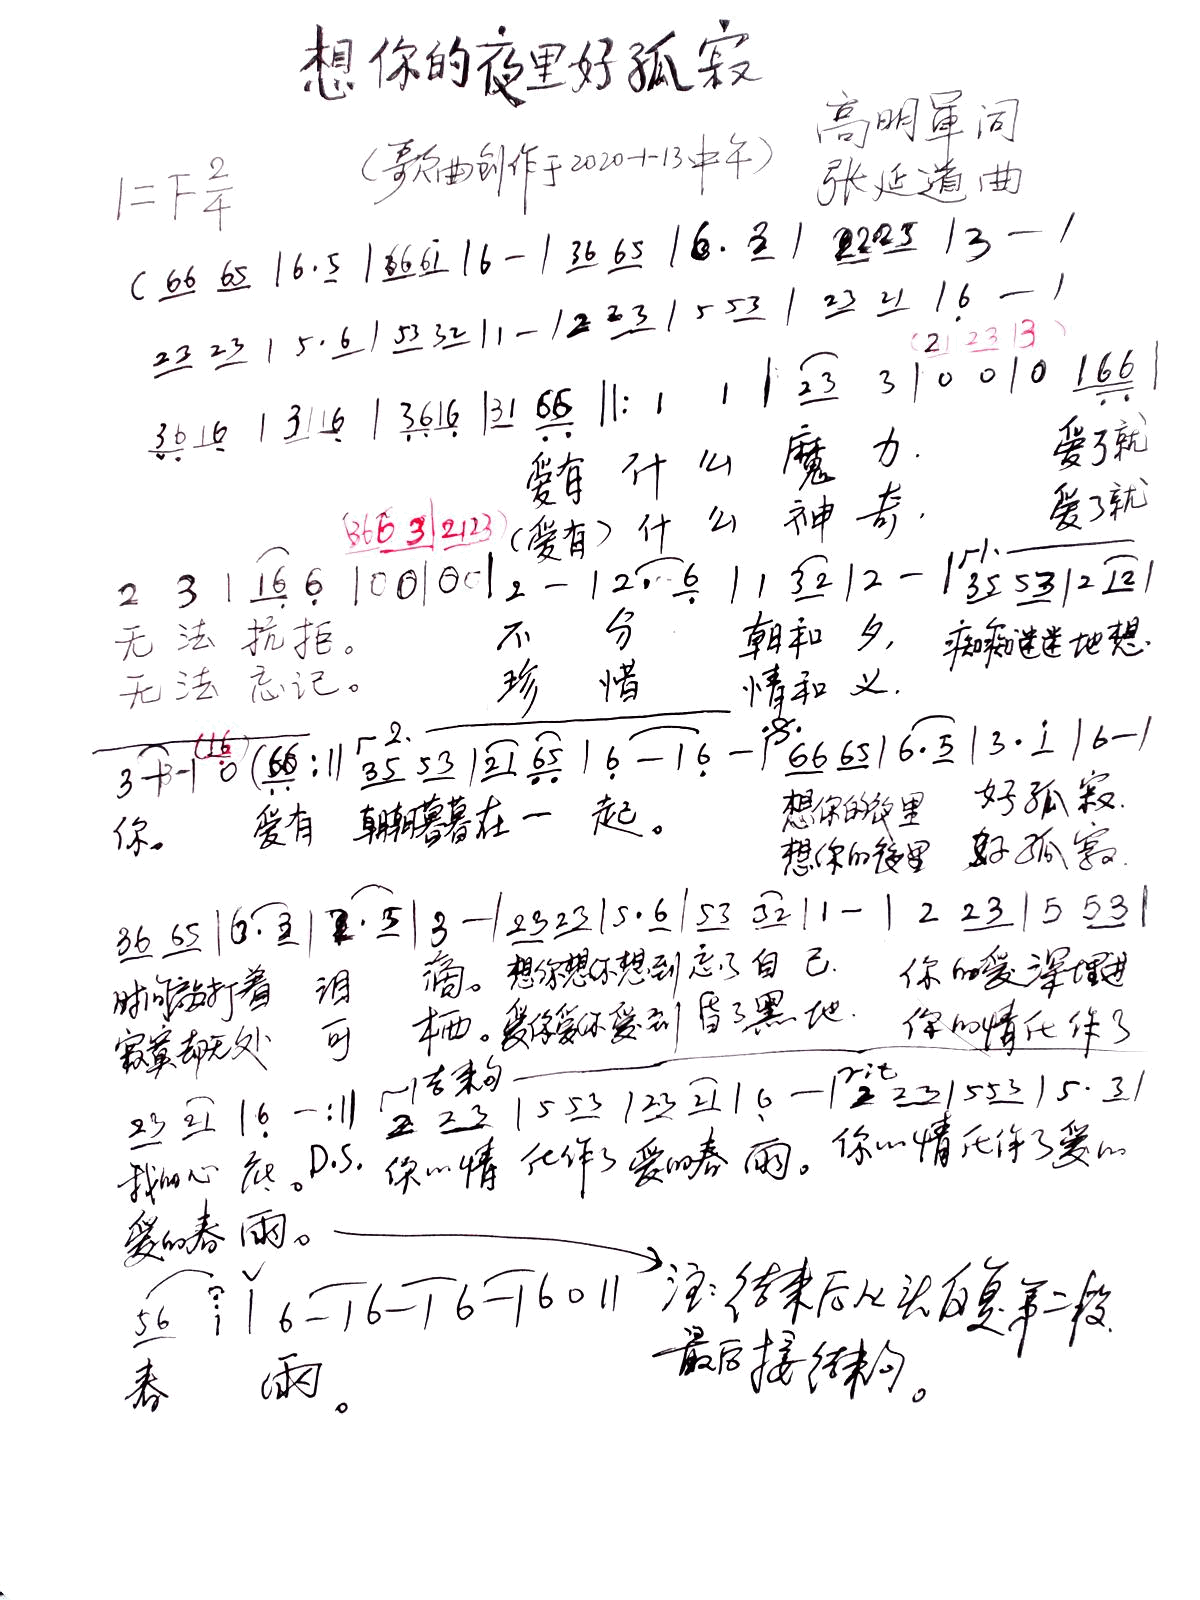 想你的夜里好孤寂
高明军词
(歌曲创作于2020-1-13中午)
张延道曲
1=F 2/4
( 66 65 | 6·5 | 6661 | 6 - | 36 65 | 6·3 | 2223 | 3 - |
23 23 | 5·6 | 53 32 | 1 - | 2 23 | 5 53 | 23 21 | 6 - |
(21 23 | 3 )
36 16 | 31 16 | 3616 | 31 66 ||: 1 1 | 23 3 | 0 0 | 0 166 |
爱有 什么 魔力. 爱了就
(爱有) 什么 神奇. 爱了就
(366 3 | 2123)
2 3 | 16 6 | 00 | 00 | 2 - | 2· 6 | 1 32 | 2 - | 1. 35 53 | 2 12 |
无法抗拒。 不分 朝和夕, 痴痴迷迷地想.
无法忘记。 珍惜 情和义.
(16)
3 - | 3 - | 0 (66 :|| 2. 35 53 | 21 65 | 6 - | 6 - | 66 65 | 6·5 | 3·i | 6 - |
你。 爱有 朝朝暮暮在一起。 想你的夜里 好孤寂.
想你的夜里 好孤寂.
36 65 | 6·3 | 2·3 | 3 - | 23 23 | 5·6 | 53 32 | 1 - | 2 23 | 5 53 |
时间敲打着 泪滴。 想你想你想到忘了自己. 你的爱深埋进
寂寞却无处 可栖。爱你爱你爱到昏了黑地. 你的情化作了
结束句 rit
23 21 | 6 - :|| 2 23 | 5 53 | 23 21 | 6 - | 2 23 | 553 | 5·3 |
我的心底。D.S. 你的情化作了爱的春雨。你的情化作了爱的
爱的春雨。
56 i | 6 - | 6 - | 6 - | 6 0 ||
注:结束后从头反复第二段
春雨。
最后接结束句。